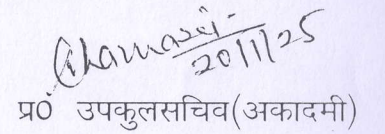 20/11/25
प्रo उपकुलसचिव(अकादमी)